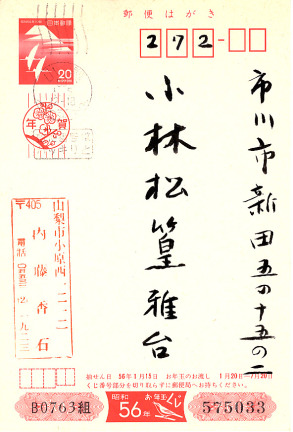 郵便はがき
日本郵便
20
272-
年賀
市川市新田五の十五の二
小林松篁雅台
〒405
山梨市小原西
内藤香石
電話
抽せん日 56年1月15日 お年玉のお渡し 1月20日-7月20日
くじ番号部分を切り取らずに郵便局へお持ちください。
B0763組
昭和56年
お年玉くじ
575033